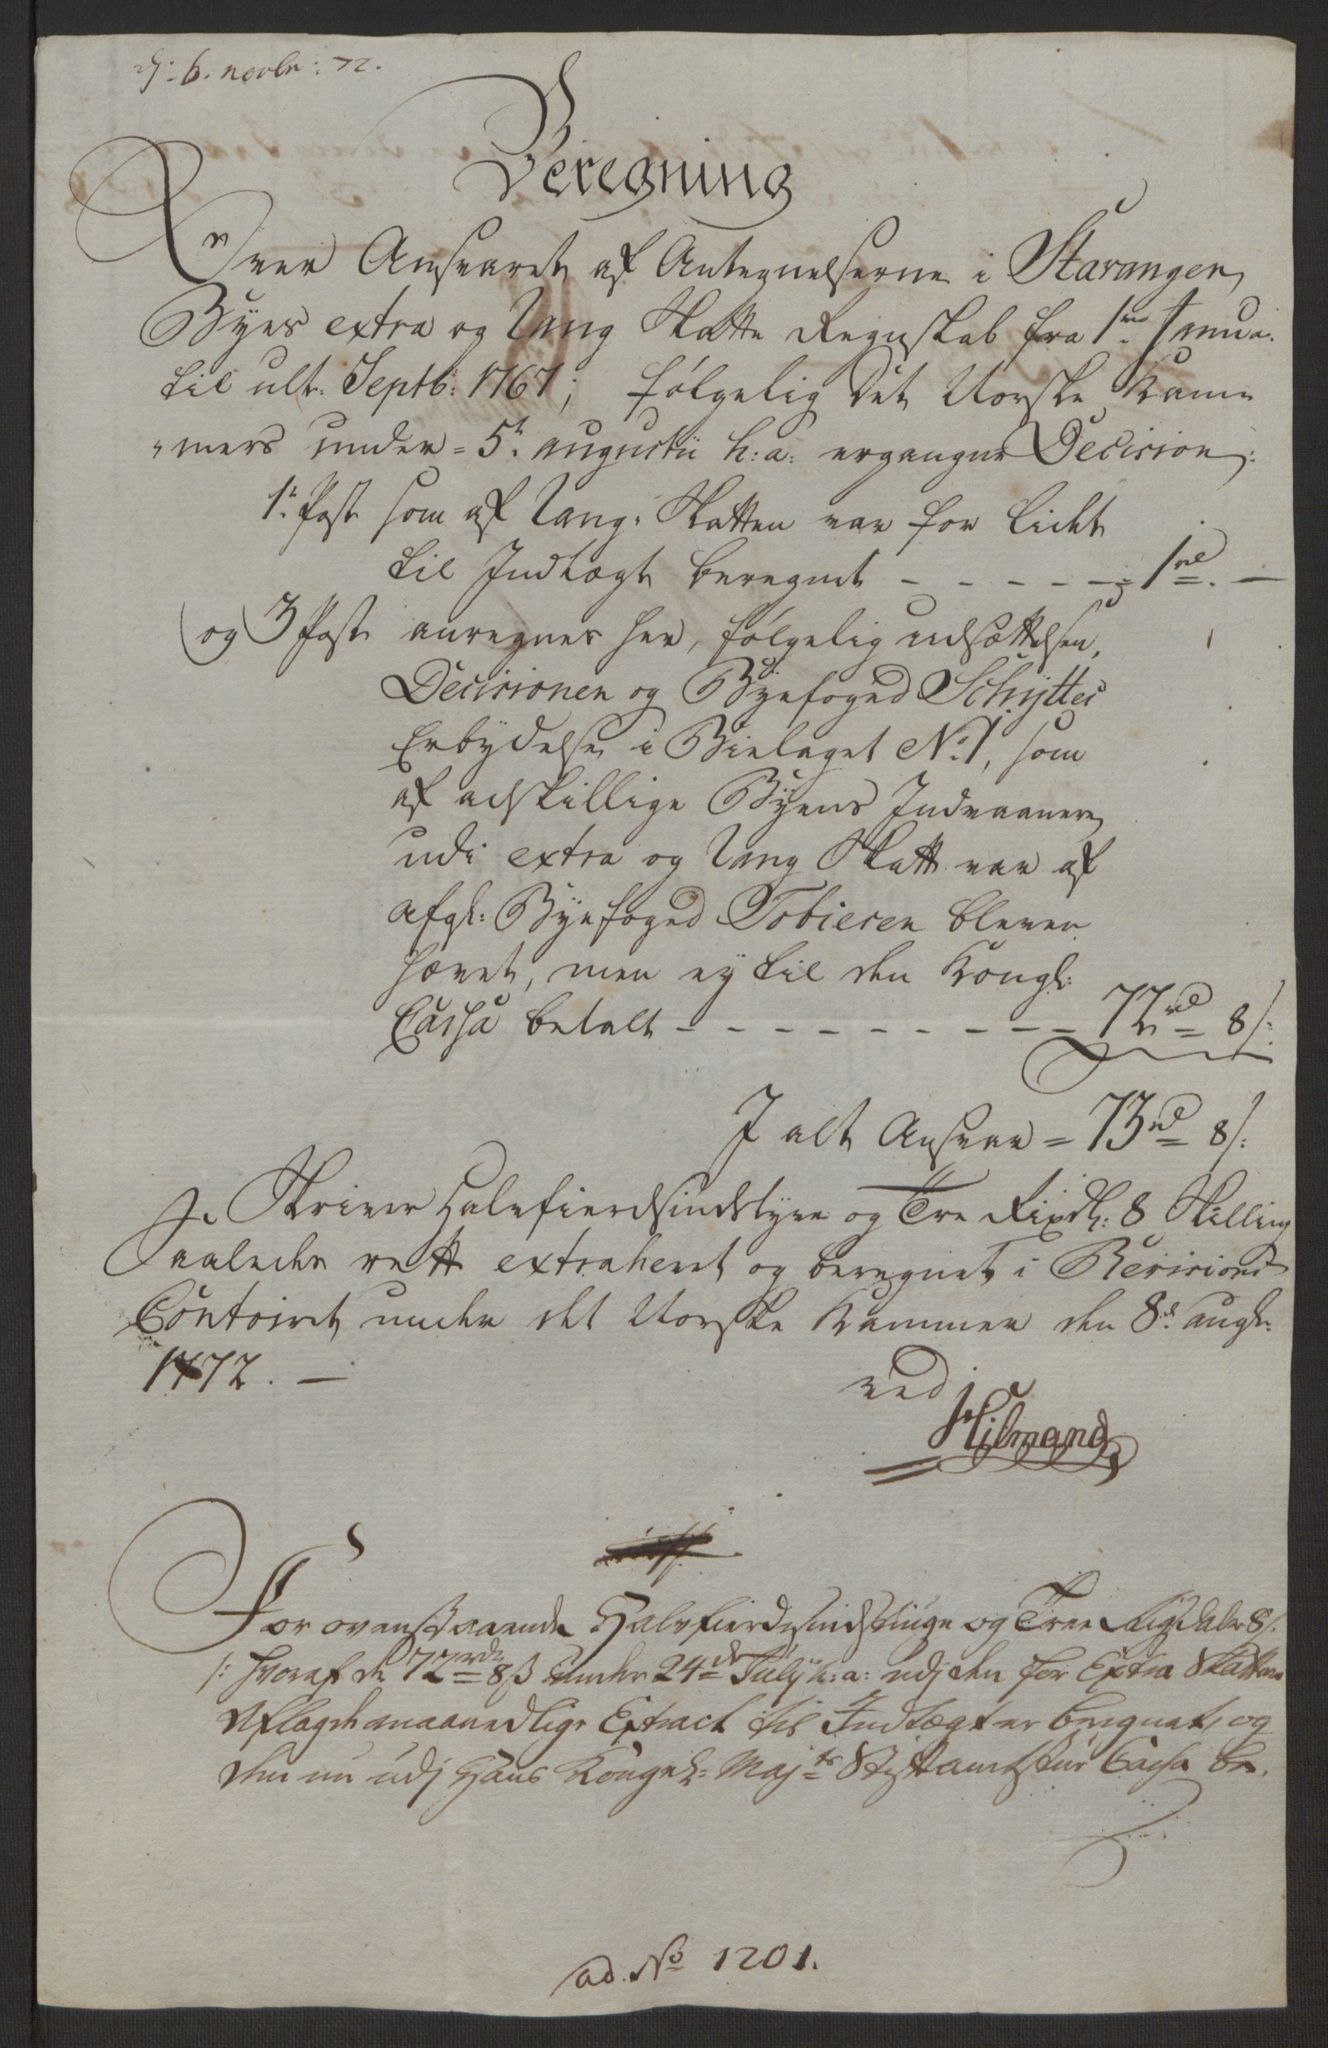 d: 6. novbr: 72.
Beregning
Over Ansvaret af Antegnelserne i Stavanger
Byes extra og Rang Skatte Regnskab fra 1mo Janua:
til ult. Septb: 1767; følgelig det Norske Kam-
-mers under = 5t. augustii h: a: ergangne Decision:
1t. Post som af Rang-Skatten var for lidt
til Indtægt beregnet - - - - - = 1 rd. —
og 3 Post anregnes her, følgelig udsættelsen,
Decisionen og Byefoged Schyttes
Erbydelse i Bielaget No. 1, som
af adskillige Byens Indvaanere
udi extra og Rang Skatt var af
afgl: Byefoged Tobiesen bleven
hævet, men ey til den Kongl:
Cassa betalt - - - - - - - - - - 72 rd 8 s:
I alt Ansvar = 73 rd 8 s:
Skriver Halvfierdsindstyve og Tre Rixdl: 8 Skilling
Saaledes rett extraheret og beregnet i Revisions
Contoiret under det Norske Kammer den 8d. augst:
1772. —
ved
Hilmand
For ovenstaaende Halvfierdesindstiuge og Tree Rigsdaler 8 s.
/: hvoraf de 72 rdr 8 s under 24de Julij h: a: udj den for Extra Skattens
Aflagde maanedlige Extract til Indtægt er beregnet, og
den nu udj Hans Kongel: Majts Stiftamtstue Cassa be,
ad. No 1201.